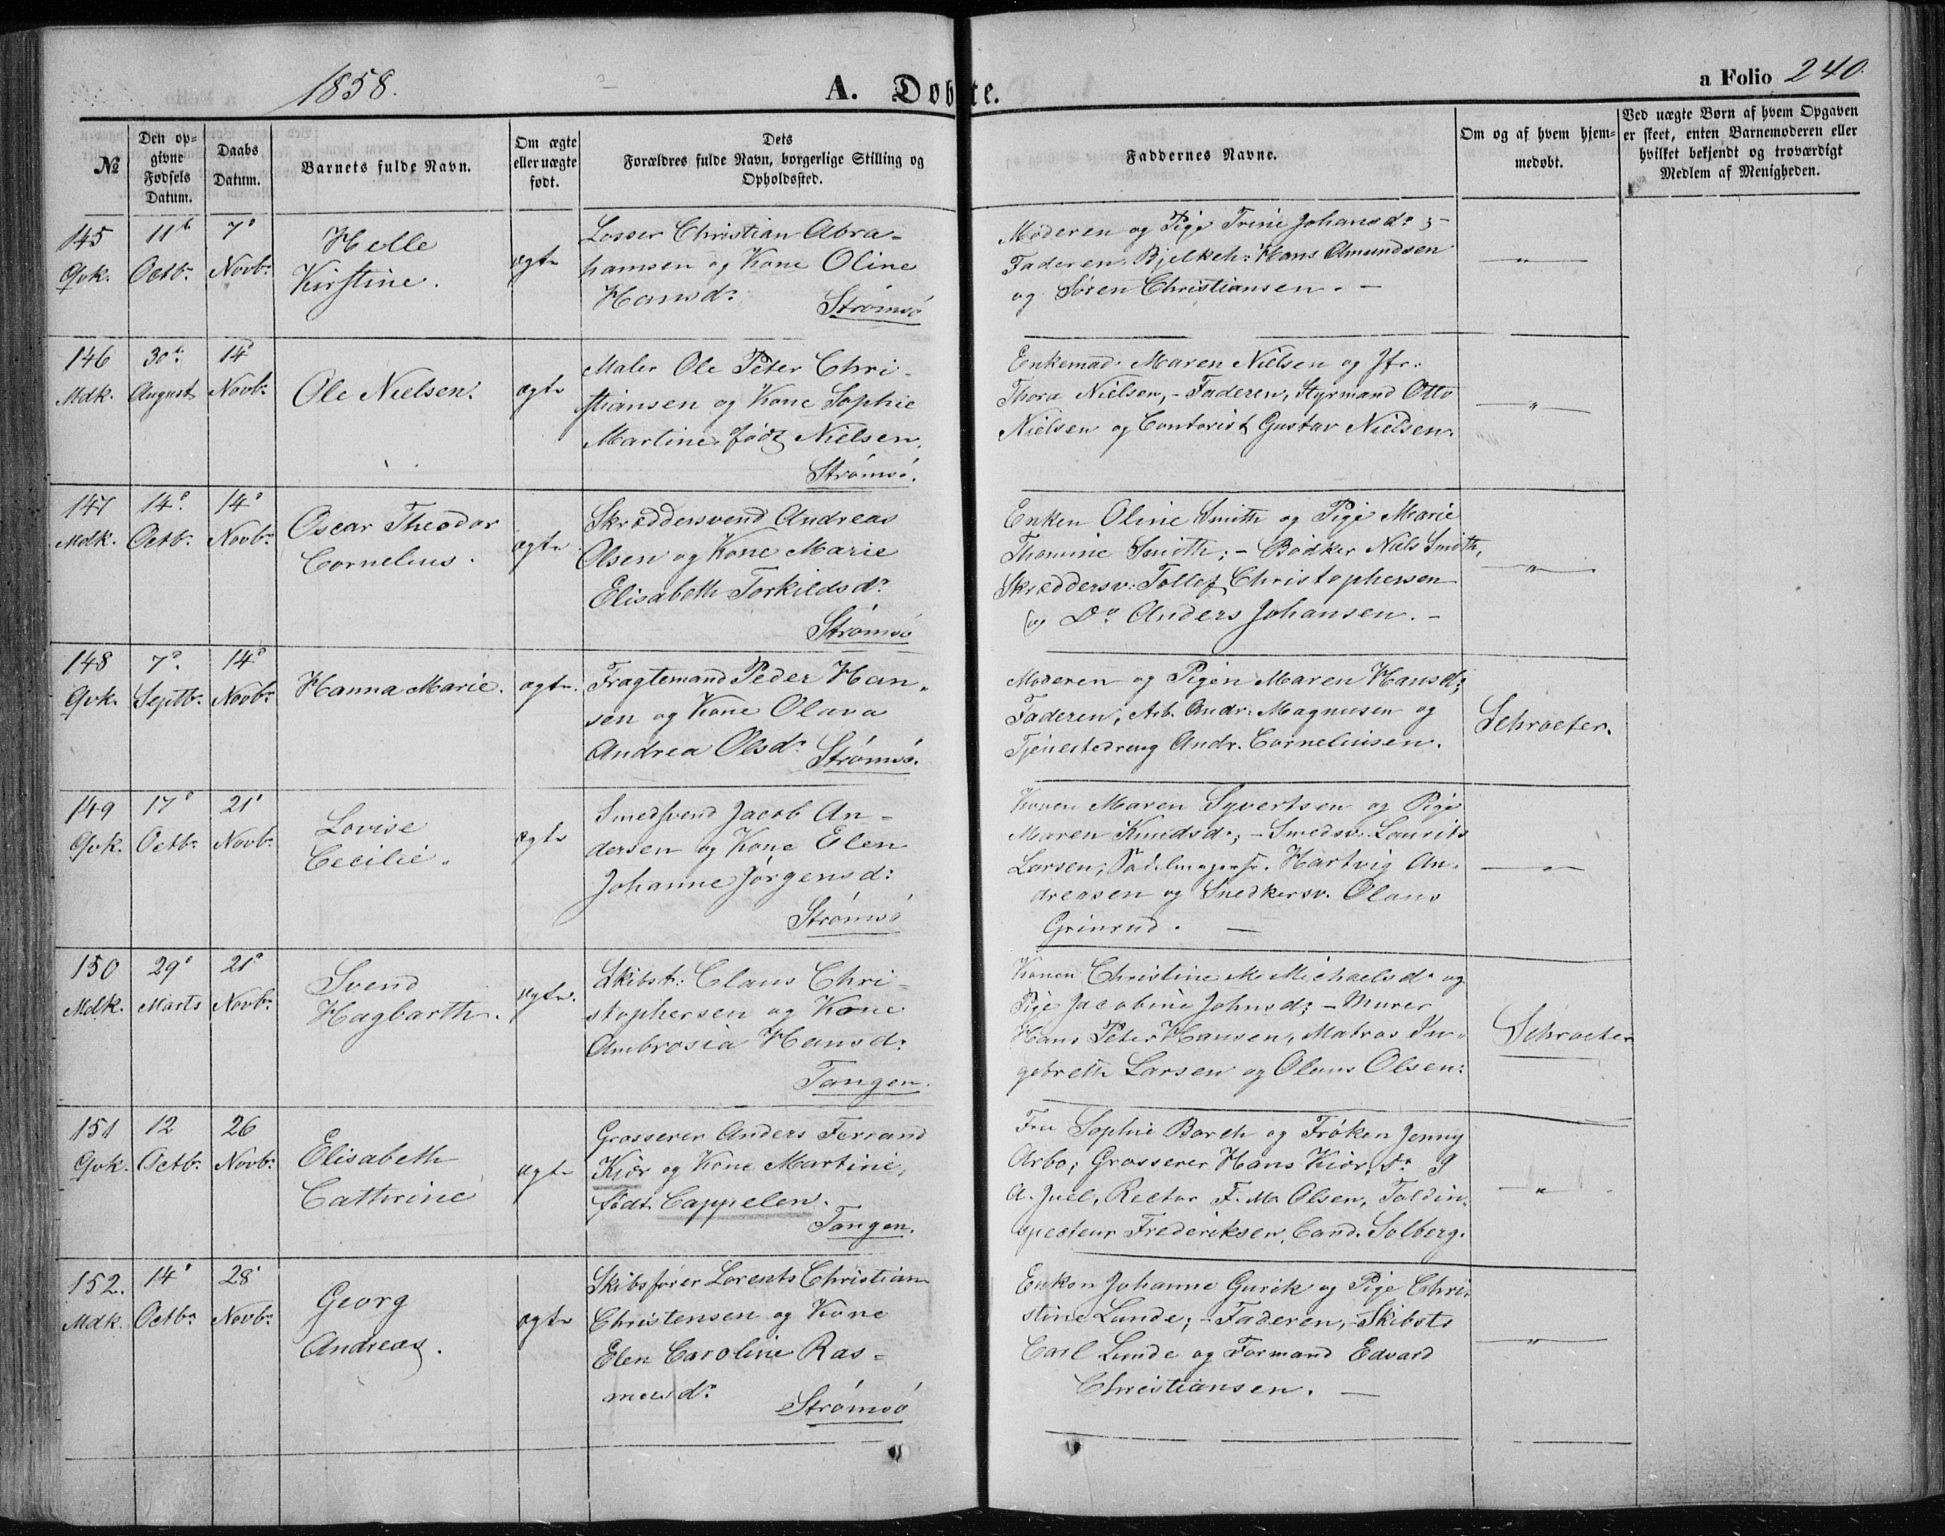 1858.
A. Døbte.
a Folio 240.
№
Den op-
givne
Fødsels
Datum.
Daabs
Datum.
Barnets fulde Navn.
Om ægte
eller uægte
født.
Dets
Forældres fulde Navn, borgerlige Stilling og
Opholdssted.
Faddernes Navne.
Om og af hvem hjem-
medøbt.
Ved uægte Børn af hvem Opgaven
er skeet, enten Barnemoderen eller
hvilket bekjendt og troværdigt
Medlem af Menigheden.
145
Qvk.
11te
Octbr.
7de
Novbr.
Helle
Kirstine.
ægte
Losser Christian Abra-
hamsen og Kone Oline
Hansdr.
Strømsø
Moderen og Pige Trine Johansdr;-
Faderen, Bjelkeh: Hans Amundsen
og Søren Christiansen. -
"
146
Mdk.
30te
August
14de
Novbr.
Ole Nielsen.
ægte
Maler Ole Peter Chri-
stiansen og Kone Sophie
Martine født Nielsen.
Strømsø.
Enkemad. Maren Nielsen og Jfr.
Thora Nielsen, - Faderen, Styrmand Otto
Nielsen og Contorist Gustav Nielsen.
"
147
Mdk.
14de
Octbr.
14de
Novbr.
Oscar Theodor
Cornelius.
ægte
Skræddersvend Andreas
Olsen og Kone Marie
Elisabeth Torkildsdr.
Strømsø
Enken Oline Smith og Pige Marie
Thomine Smith; - Bødker Niels Smith,
Skræddersv: Tollef Christophersen
og Do Anders Johansen. -
"
148
Qvk.
7de
Septbr.
14de
Novbr.
Hanna Marie.
ægte.
Fragtemand Peder Han-
sen og Kone Olava
Andrea Olsdr. Strømsø.
Moderen og Pigen Maren Hansd;
Faderen, Arb. Andr. Magnusen og
Tjenestedreng Andr. Corneliusen.
Schroeter.
149
Qvk.
17de
Octbr.
21de
Novbr.
Lovise
Cecilie.
ægte
Smedsvend Jacob An-
dersen og Kone Elen
Johanne Jørgensd:
Strømsø
Konen Maren Syvertsen og Pige
Maren Knudsd.; - Smedsv. Laurits
Larsen, Sadelmagersv. Hartvig An-
dreasen og Snedkersv. Olaus
Grinrud. -
"
150
Mdk.
29de
Marts
21de
Novbr.
Svend
Hagbarth.
ægte.
Skibst: Claus Chri-
stophersen og Kone
Ambrosia Hansd:
Tangen.
Konen Christine M. Michaelsdr og
Pige Jacobine Johnsd; - Murer
Hans Peter Hansen, Matros In-
gebreth Larsen og Olaus Olsen:
Schroeter
151
Qvk.
12
Octbr.
26
Novbr.
Elisabeth
Cathrine
ægte
Grosserer Anders Ferrand
Kiør og Kone Martine,
født Cappelen.
Tangen.
Fru Sophie Borch og Frøken Jenny
Arbo; Grosserer Hans Kiør, Dr
A. Juel, Rector F. M. Olsen, Toldin-
specteur Frederiksen, Cand. Solberg.
"
152.
Mdk.
14de
Octbr.
28de
Novbr.
Georg
Andreas.
ægte
Skibsfører Lorents Christian
Christensen og Kone
Elen Caroline Ras-
musdr.
Strømsø
Enken Johanne Gurik og Pige Chri-
stine Lunde; - Faderen, Skibst:
Carl Lunde og Formand Edvard
Christiansen. -
"